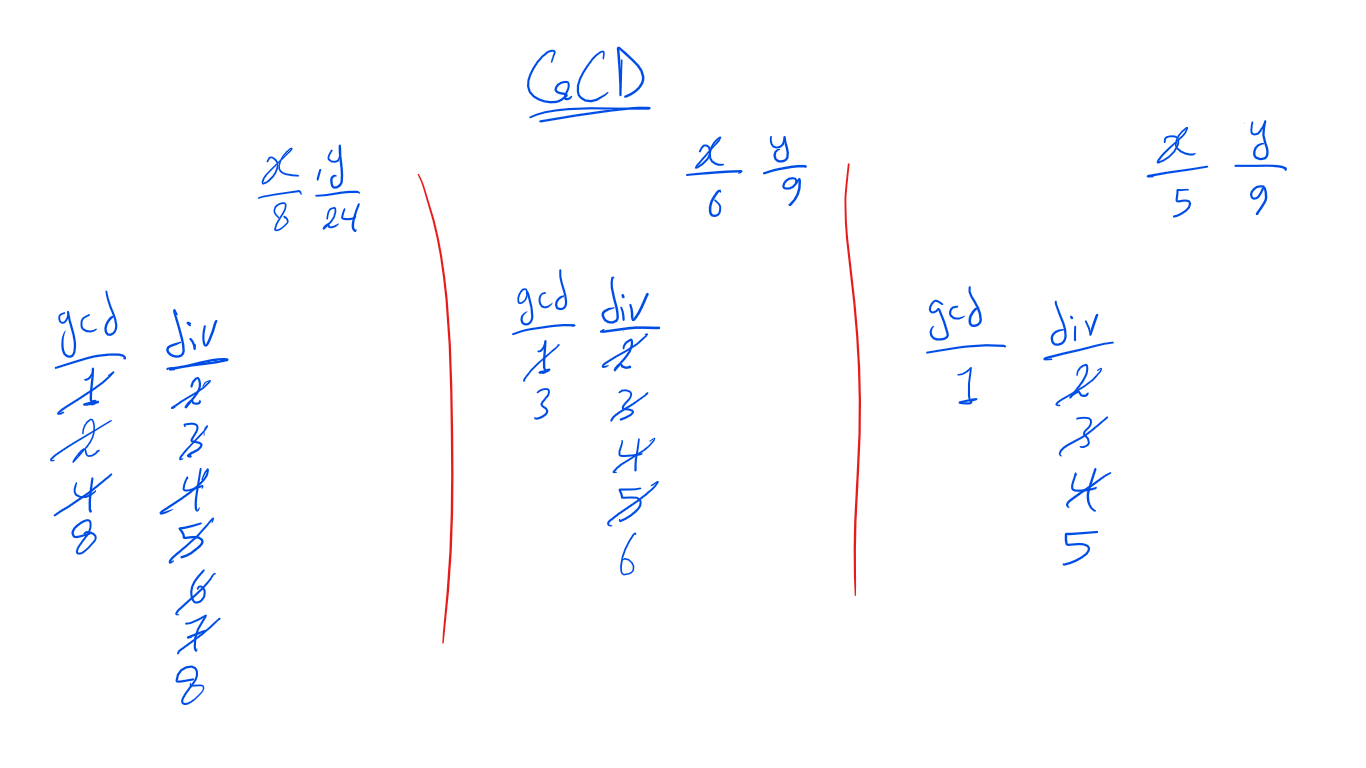 GCD
x , y
8 24
gcd div
1 2
2 3
4 4
8 5
6
7
8
x y
6 9
gcd div
1 2
3 3
4
5
6
x y
5 9
gcd div
1 2
3
4
5